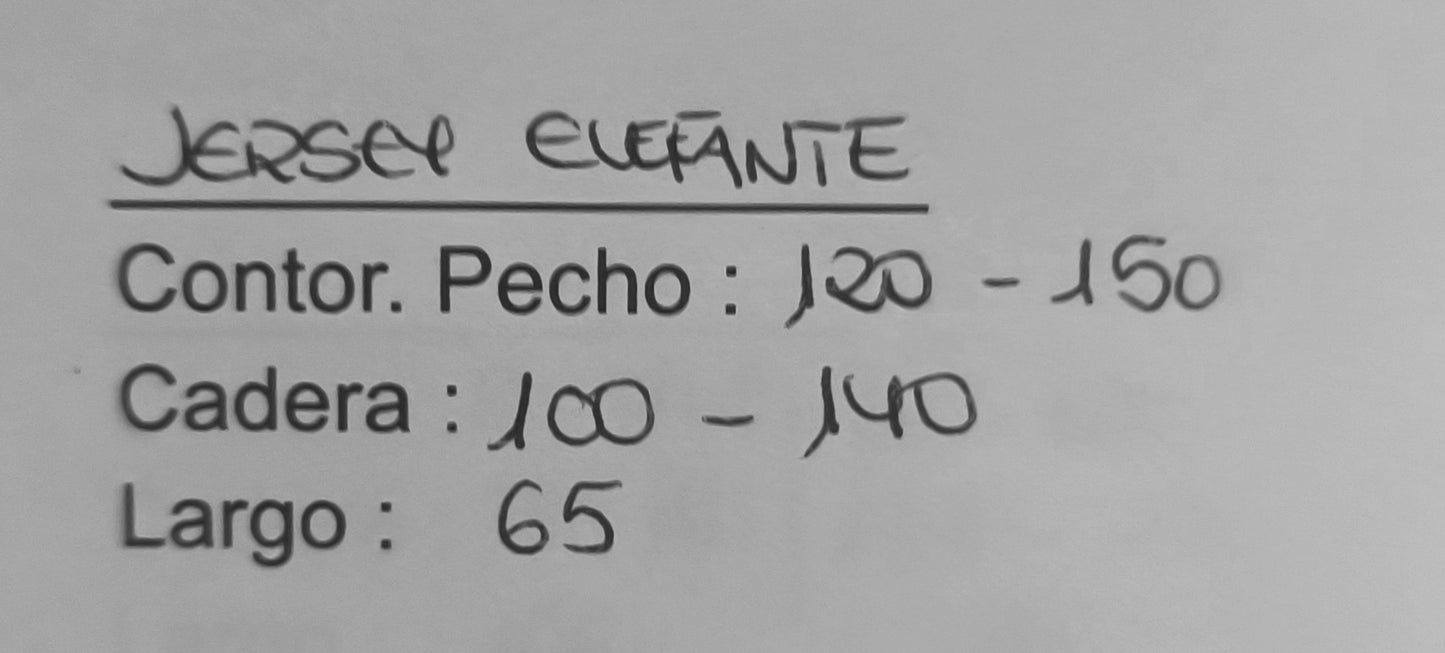 JERSEY ELEFANTE
Contor. Pecho : 120 - 150
Cadera : 100 - 140
Largo : 65